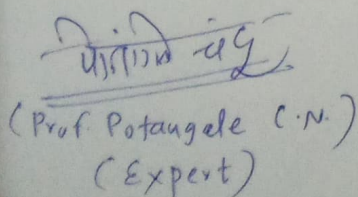 (Prof. Potangale C.N.)
(Expert)